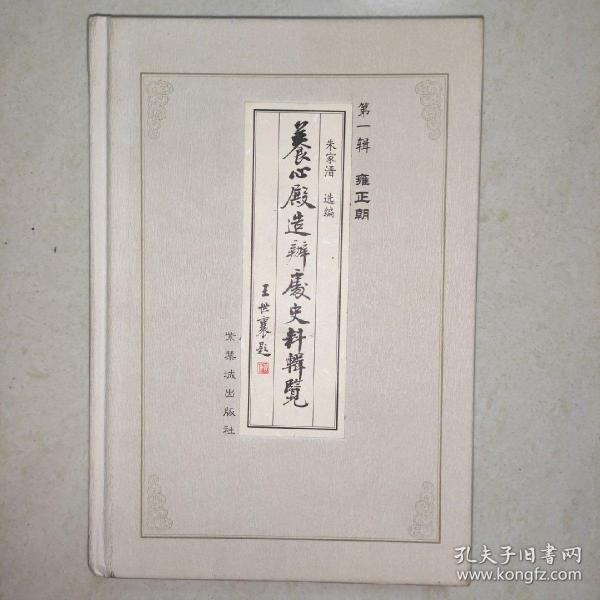 第一辑 雍正朝
朱家溍 选编
養心殿造辦處史料輯覽
王世襄题
紫禁城出版社
孔夫子旧书网
www.kongfz.com